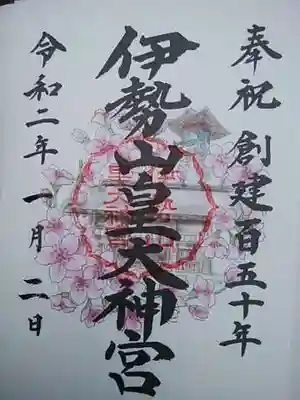 奉祝 創建百五十年
伊勢山皇大神宮
令和二年一月二日